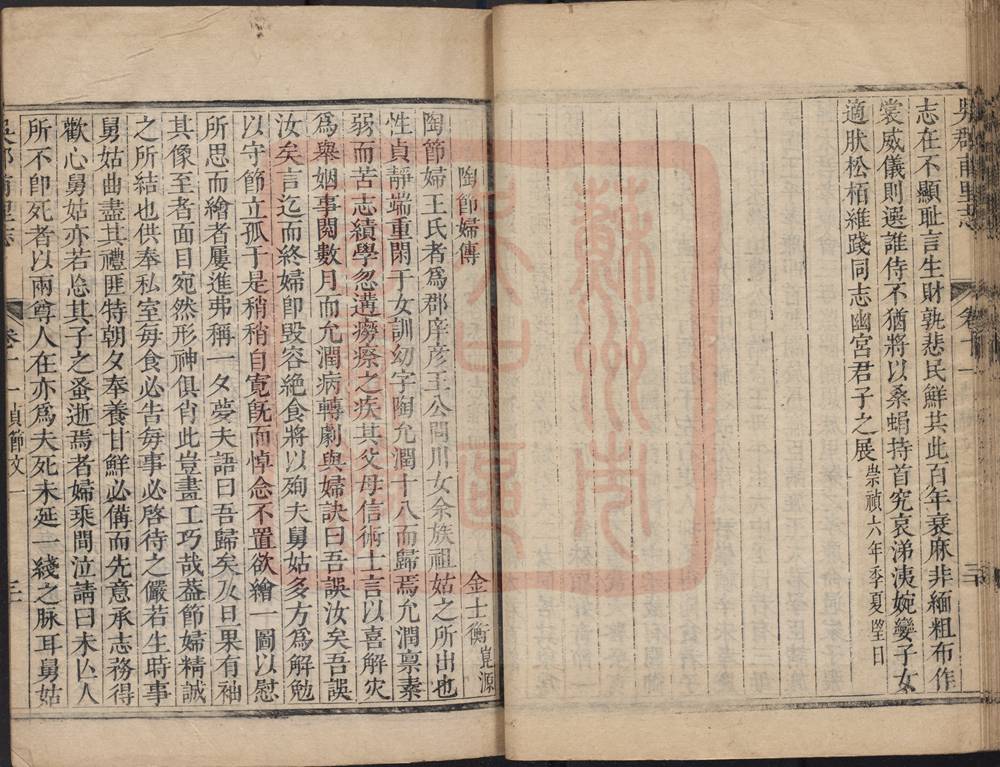 吳郡甫里志
卷十一
三
志在不顯耻言生財孰悲民鮮其此百年衰麻非緬粗布作
裳威儀則選誰侍不猶將以桑蜎持首究哀涕洟婉孌子女
適肰松栢維踐同志幽宮君子之展崇禎六年季夏朢日
陶節婦傳
金士衡嵬源
陶節婦王氏者爲郡庠彦王公問川女余族祖姑之所出也
性貞靜端重閑于女訓幼字陶允潤十八而歸焉允潤禀素
弱而苦志績學忽遘癆瘵之疾其父母信術士言以喜解灾
爲舉姻事閱數月而允潤病轉劇與婦訣曰吾誤汝矣吾誤
汝矣言迄而終婦卽毀容絶食將以殉夫舅姑多方爲解勉
以守節立孤于是稍稍自寬旣而悼念不置欲繪一圖以慰
所思而繪者屢進弗稱一夕夢夫語曰吾歸矣及旦果有袖
其像至者面目宛然形神俱肖此豈畫工巧哉葢節婦精誠
之所結也供奉私室每食必告每事必啓待之儼若生時事
舅姑曲盡其禮匪特朝夕奉養甘鮮必備而先意承志務得
歡心舅姑亦若忘其子之蚤逝焉者婦乘間泣請曰未亾人
所不卽死者以兩尊人在亦爲夫死未延一綫之脉耳舅姑
吳郡甫里志
卷十一
貞節文一
三